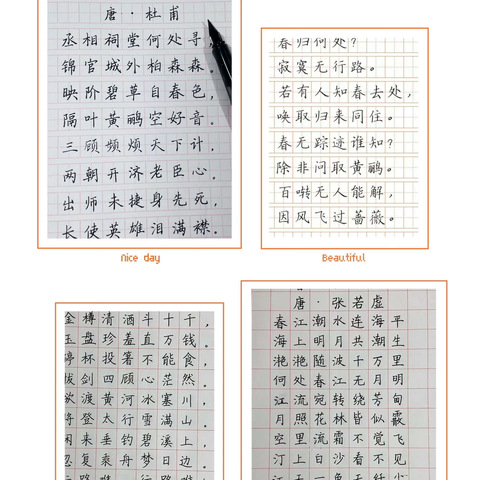 唐·杜甫
丞相祠堂何处寻,
锦官城外柏森森。
映阶碧草自春色,
隔叶黄鹂空好音。
三顾频烦天下计,
两朝开济老臣心。
出师未捷身先死,
长使英雄泪满襟。
Nice day
春归何处?
寂寞无行路。
若有人知春去处,
唤取归来同住。
春无踪迹谁知?
除非问取黄鹂。
百啭无人能解,
因风飞过蔷薇。
Beautiful
金樽清酒斗十千,
玉盘珍羞直万钱。
停杯投箸不能食,
拔剑四顾心茫然。
欲渡黄河冰塞川,
将登太行雪满山。
闲来垂钓碧溪上,
忽复乘舟梦日边。
唐·张若虚
春江潮水连海平
海上明月共潮生
滟滟随波千万里
何处春江无月明
江流宛转绕芳甸
月照花林皆似霰
空里流霜不觉飞
汀上白沙看不见